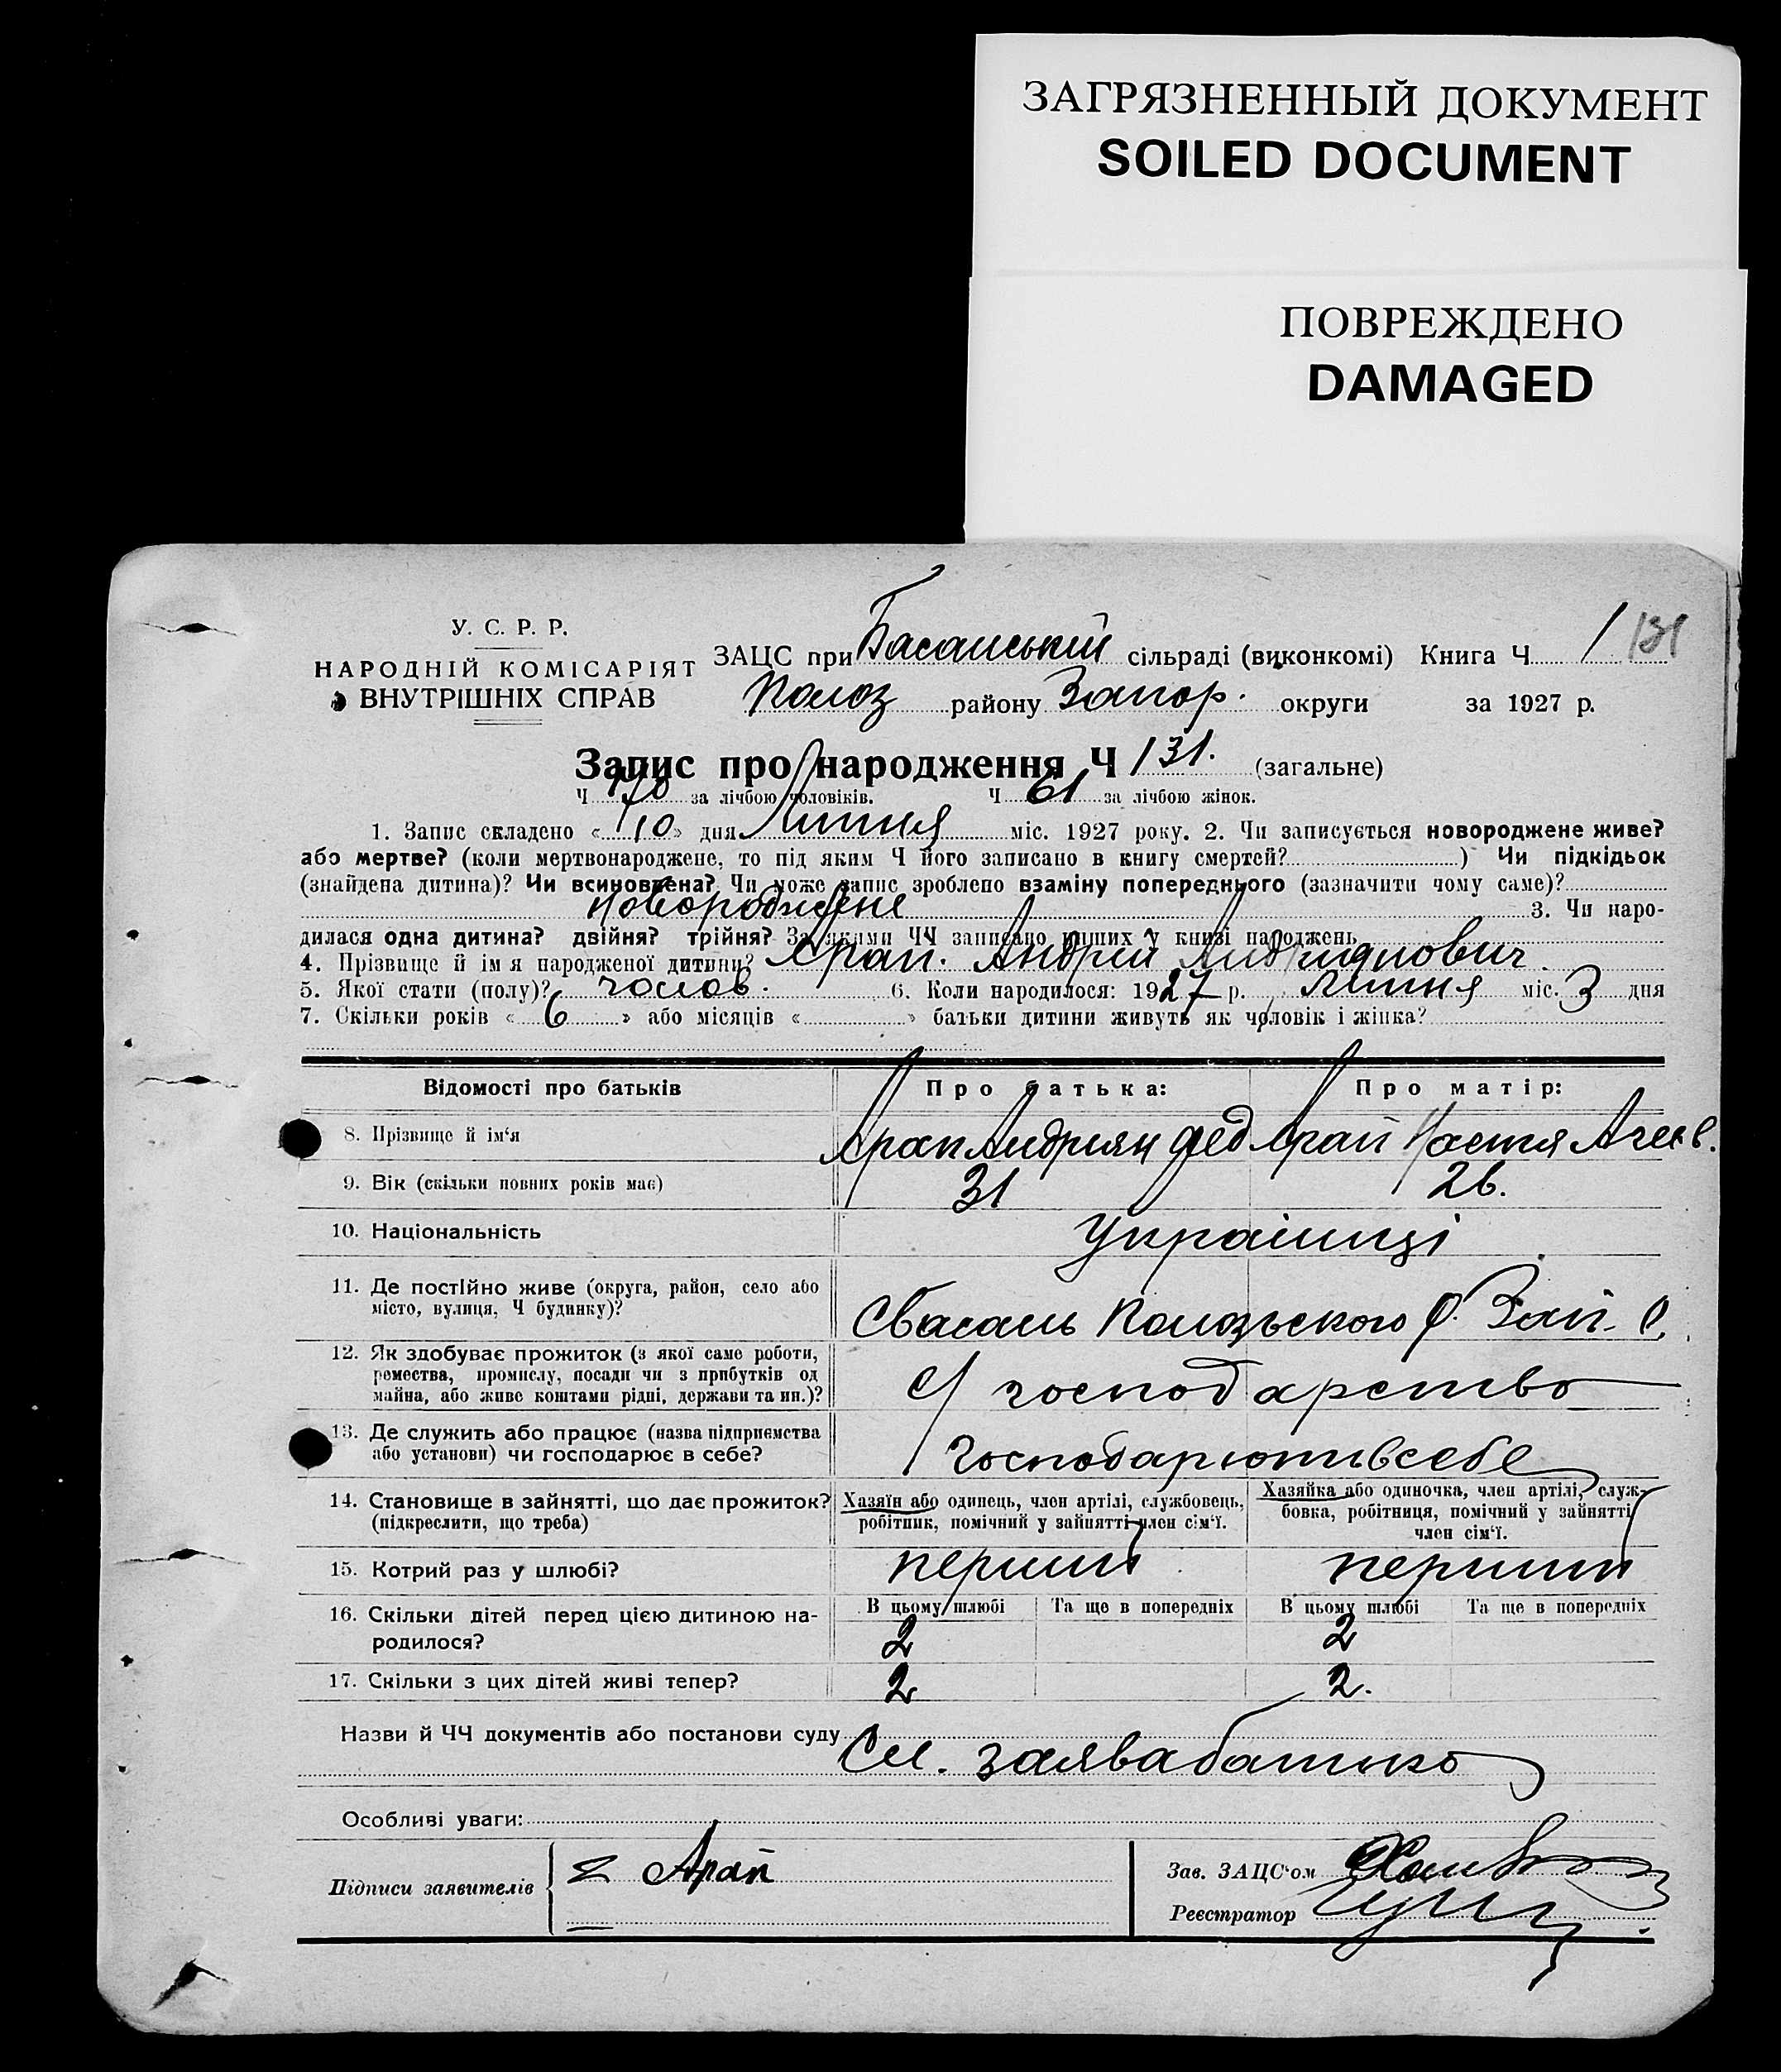 ЗАГРЯЗНЕННЫЙ ДОКУМЕНТ
SOILED DOCUMENT
ПОВРЕЖДЕНО
DAMAGED
У. С. Р. Р.
НАРОДНІЙ КОМІСАРІЯТ
ВНУТРІШНІХ СПРАВ
ЗАЦС при Басанській сільраді (виконкомі) Книга Ч 1 131
Полоз району Запор. округи за 1927 р.
Запис про народження Ч 131. (загальне)
Ч 70 за лічбою чоловіків. Ч 61 за лічбою жінок.
1. Запис складено «10» дня Липня міс. 1927 року. 2. Чи записується новороджене живе?
або мертве? (коли мертвонароджене, то під яким Ч його записано в книгу смертей? ) Чи підкідьок
(знайдена дитина)? Чи всиновлена? Чи може запис зроблено взаміну попереднього (зазначити чому саме)?
новороджене 3. Чи наро-
дилася одна дитина? двійня? трійня? За якими ЧЧ записано инших у книзі народжень
4. Прізвище й ім я народженої дитини? Арап. Андрій Андриянович.
5. Якої стати (полу)? чолов. 6. Коли народилося: 1927 р. Липня міс. 3 дня
7. Скільки років «6» або місяців « » батьки дитини живуть як чоловік і жінка?
Відомості про батьків Про батька: Про матір:
8. Прізвище й ім'я Арап Андриян Фед Арап Настя
9. Вік (скільки повних років має) 31 26.
10. Національність Українці
11. Де постійно живе (округа, район, село або
місто, вулиця, Ч будинку)? Полозьского Р. Зап. О.
12. Як здобуває прожиток (з якої саме роботи,
ремества, промислу, посади чи з прибутків од
майна, або живе коштами рідні, держави та ин.)? С/ господарство
13. Де служить або працює (назва підприємства
або установи) чи господарює в себе? Господарють в себе
14. Становище в зайнятті, що дає прожиток?
(підкреслити, що треба)
Хазяїн або одинець, член артілі, службовець,
робітник, помічний у зайнятті член сім'ї.
Хазяйка або одиночка, член артілі, служ-
бовка, робітниця, помічний у зайнятті
член сім'ї.
15. Котрий раз у шлюбі? перший перший
16. Скільки дітей перед цією дитиною на-
родилося?
В цьому шлюбі Та ще в попередніх В цьому шлюбі Та ще в попередніх
2 2
17. Скільки з цих дітей живі тепер? 2 2.
Назви й ЧЧ документів або постанови суду
Сл. заява батько
Особливі уваги:
Підписи заявителів Арап
Зав. ЗАЦС'ом
Реєстратор